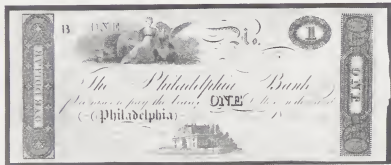 B ONE No. 1
ONE DOLLAR
The Philadelphia Bank
promises to pay the bearer ONE
Philadelphia
18
ONE